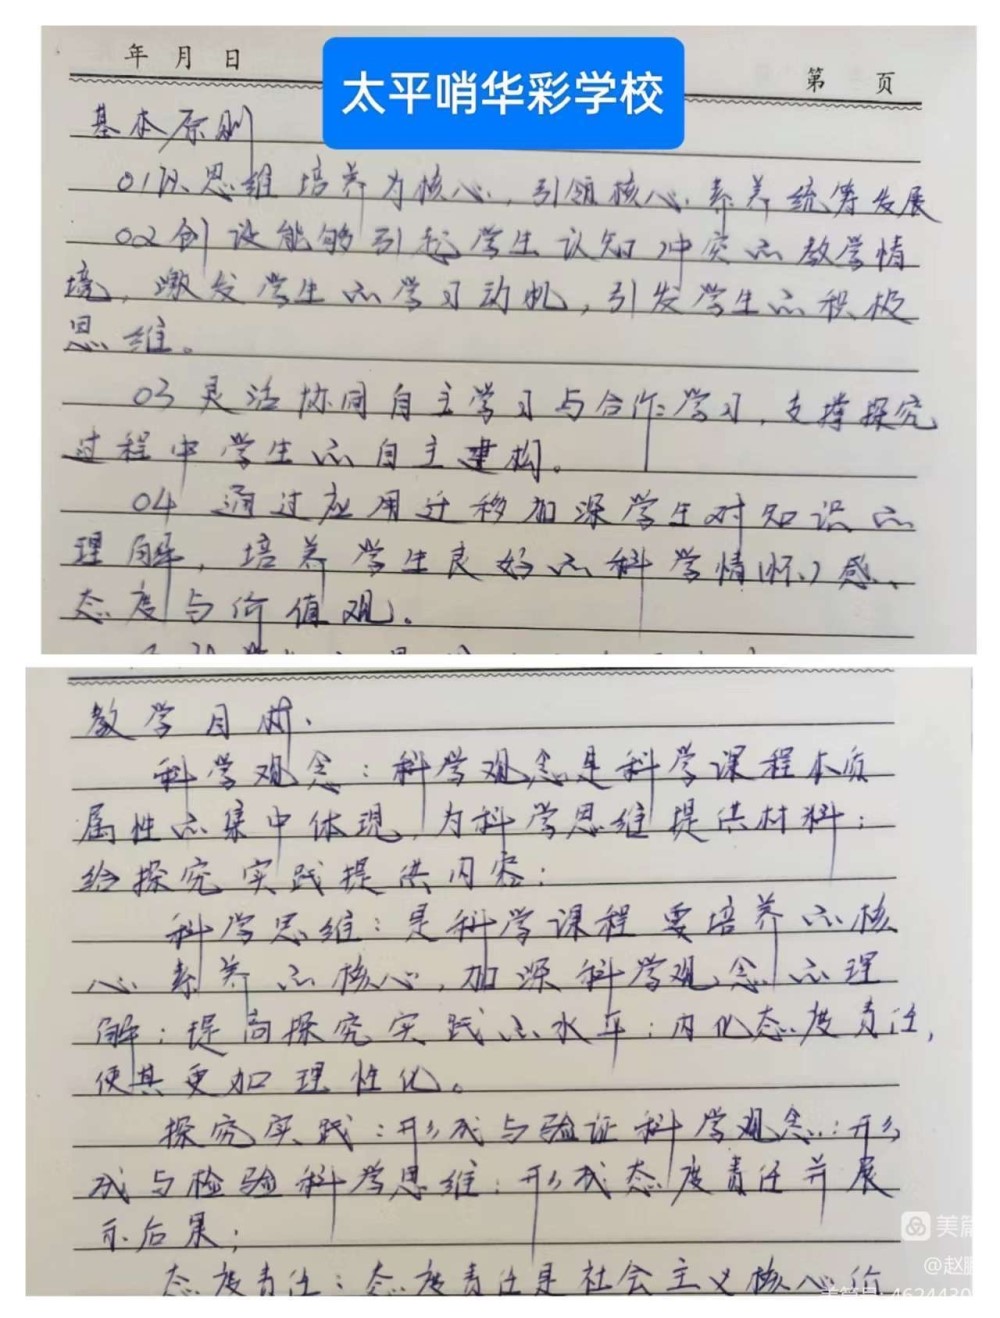 年 月 日
太平哨华彩学校
第 页
基本原则
01以思维培养为核心,引领核心素养统筹发展
02创设能够引起学生认知冲突的教学情
境,激发学生的学习动机,引发学生的积极
思维。
03灵活协同自主学习与合作学习,支撑探究
过程中学生的自主建构。
04 通过应用迁移加深学生对知识的
理解,培养学生良好的科学情(怀)感、
态度与价值观。
教学目标、
科学观念:科学观念是科学课程本质
属性的集中体现,为科学思维提供材料;
给探究实践提供内容;
科学思维:是科学课程要培养的核
心素养的核心,加深科学观念的理
解;提高探究实践的水平;内化态度责任,
使其更加理性化。
探究实践:形成与验证科学观念;形
成与检验科学思维;形成态度责任并展
示后果;
态度责任:态度责任是社会主义核心价
美篇
@赵